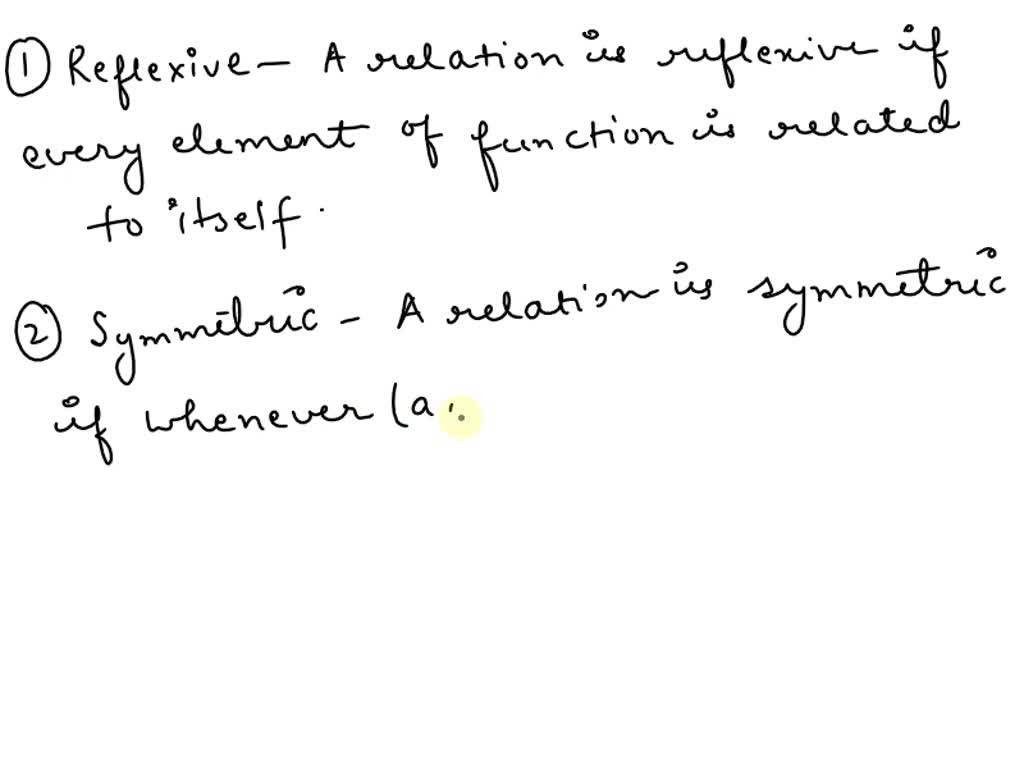 ① Reflexive - A relation is reflexive if
every element of function is related
to itself.
② Symmetric - A relation is symmetric
if whenever (a,